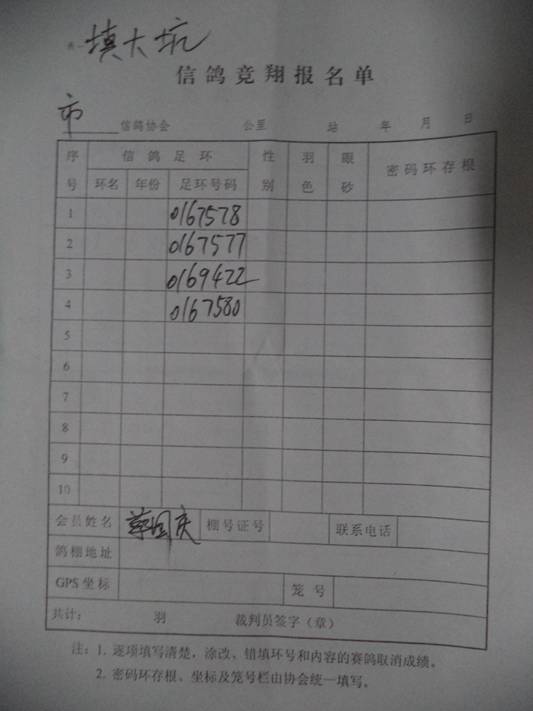 填大坑
信鸽竞翔报名单
市 信鸽协会 公里 站 年 月 日
序号 信鸽足环 性别 羽色 眼砂 密码环存根
环名 年份 足环号码
1 0167578
2 0167577
3 0169422
4 0167580
5
6
7
8
9
10
会员姓名 国庆 棚号证号 联系电话
鸽棚地址
GPS坐标 笼号
共计： 羽 裁判员签字（章）
注：1. 逐项填写清楚，涂改、错填环号和内容的赛鸽取消成绩。
2. 密码环存根、坐标及笼号栏由协会统一填写。